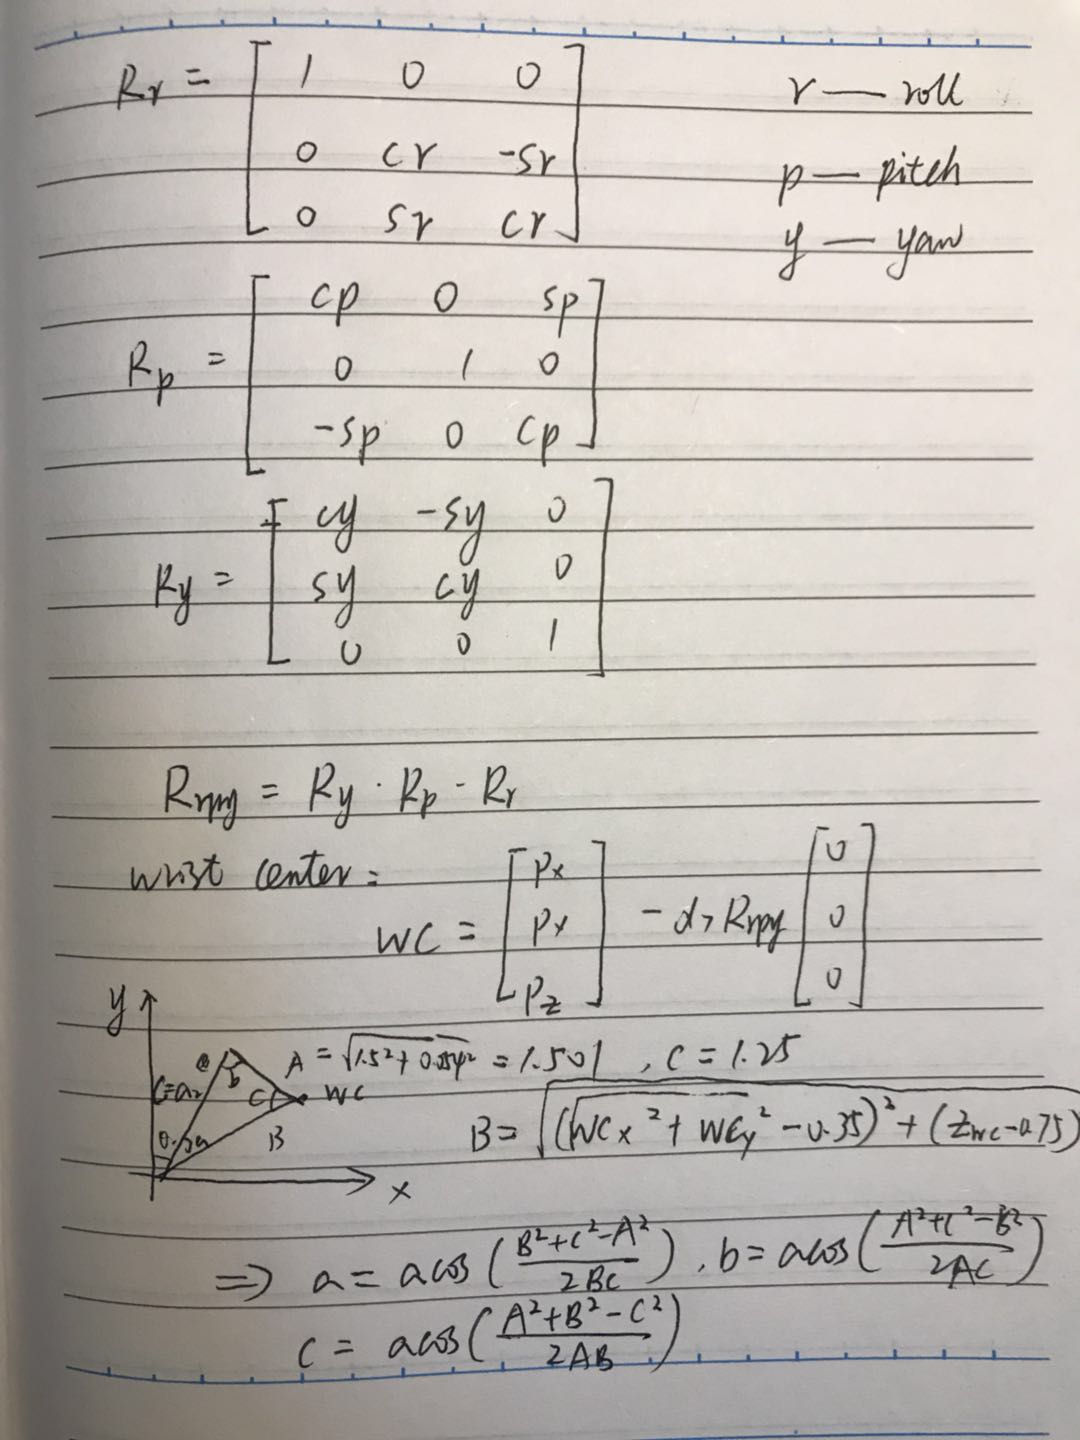 Rr = [ 1 0 0
0 cr -sr
0 sr cr ]
r — roll
p — pitch
y — yaw
Rp = [ cp 0 sp
0 1 0
-sp 0 cp ]
Ry = [ cy -sy 0
sy cy 0
0 0 1 ]
Rrpy = Ry · Rp · Rr
wrist center:
WC = [ Px
Px
Pz ] - d7 Rrpy [ 0
0
0 ]
y
A = √(1.5² + 0.054²) = 1.501 , C = 1.25
b
C=a2
c
WC
a
B
B = √((√(WCx² + WCy²) - 0.35)² + (Zwc - 0.75)
x
=> a = acos( (B²+C²-A²) / 2BC ) , b = acos( (A²+C²-B²) / 2AC )
c = acos( (A²+B²-C²) / 2AB )